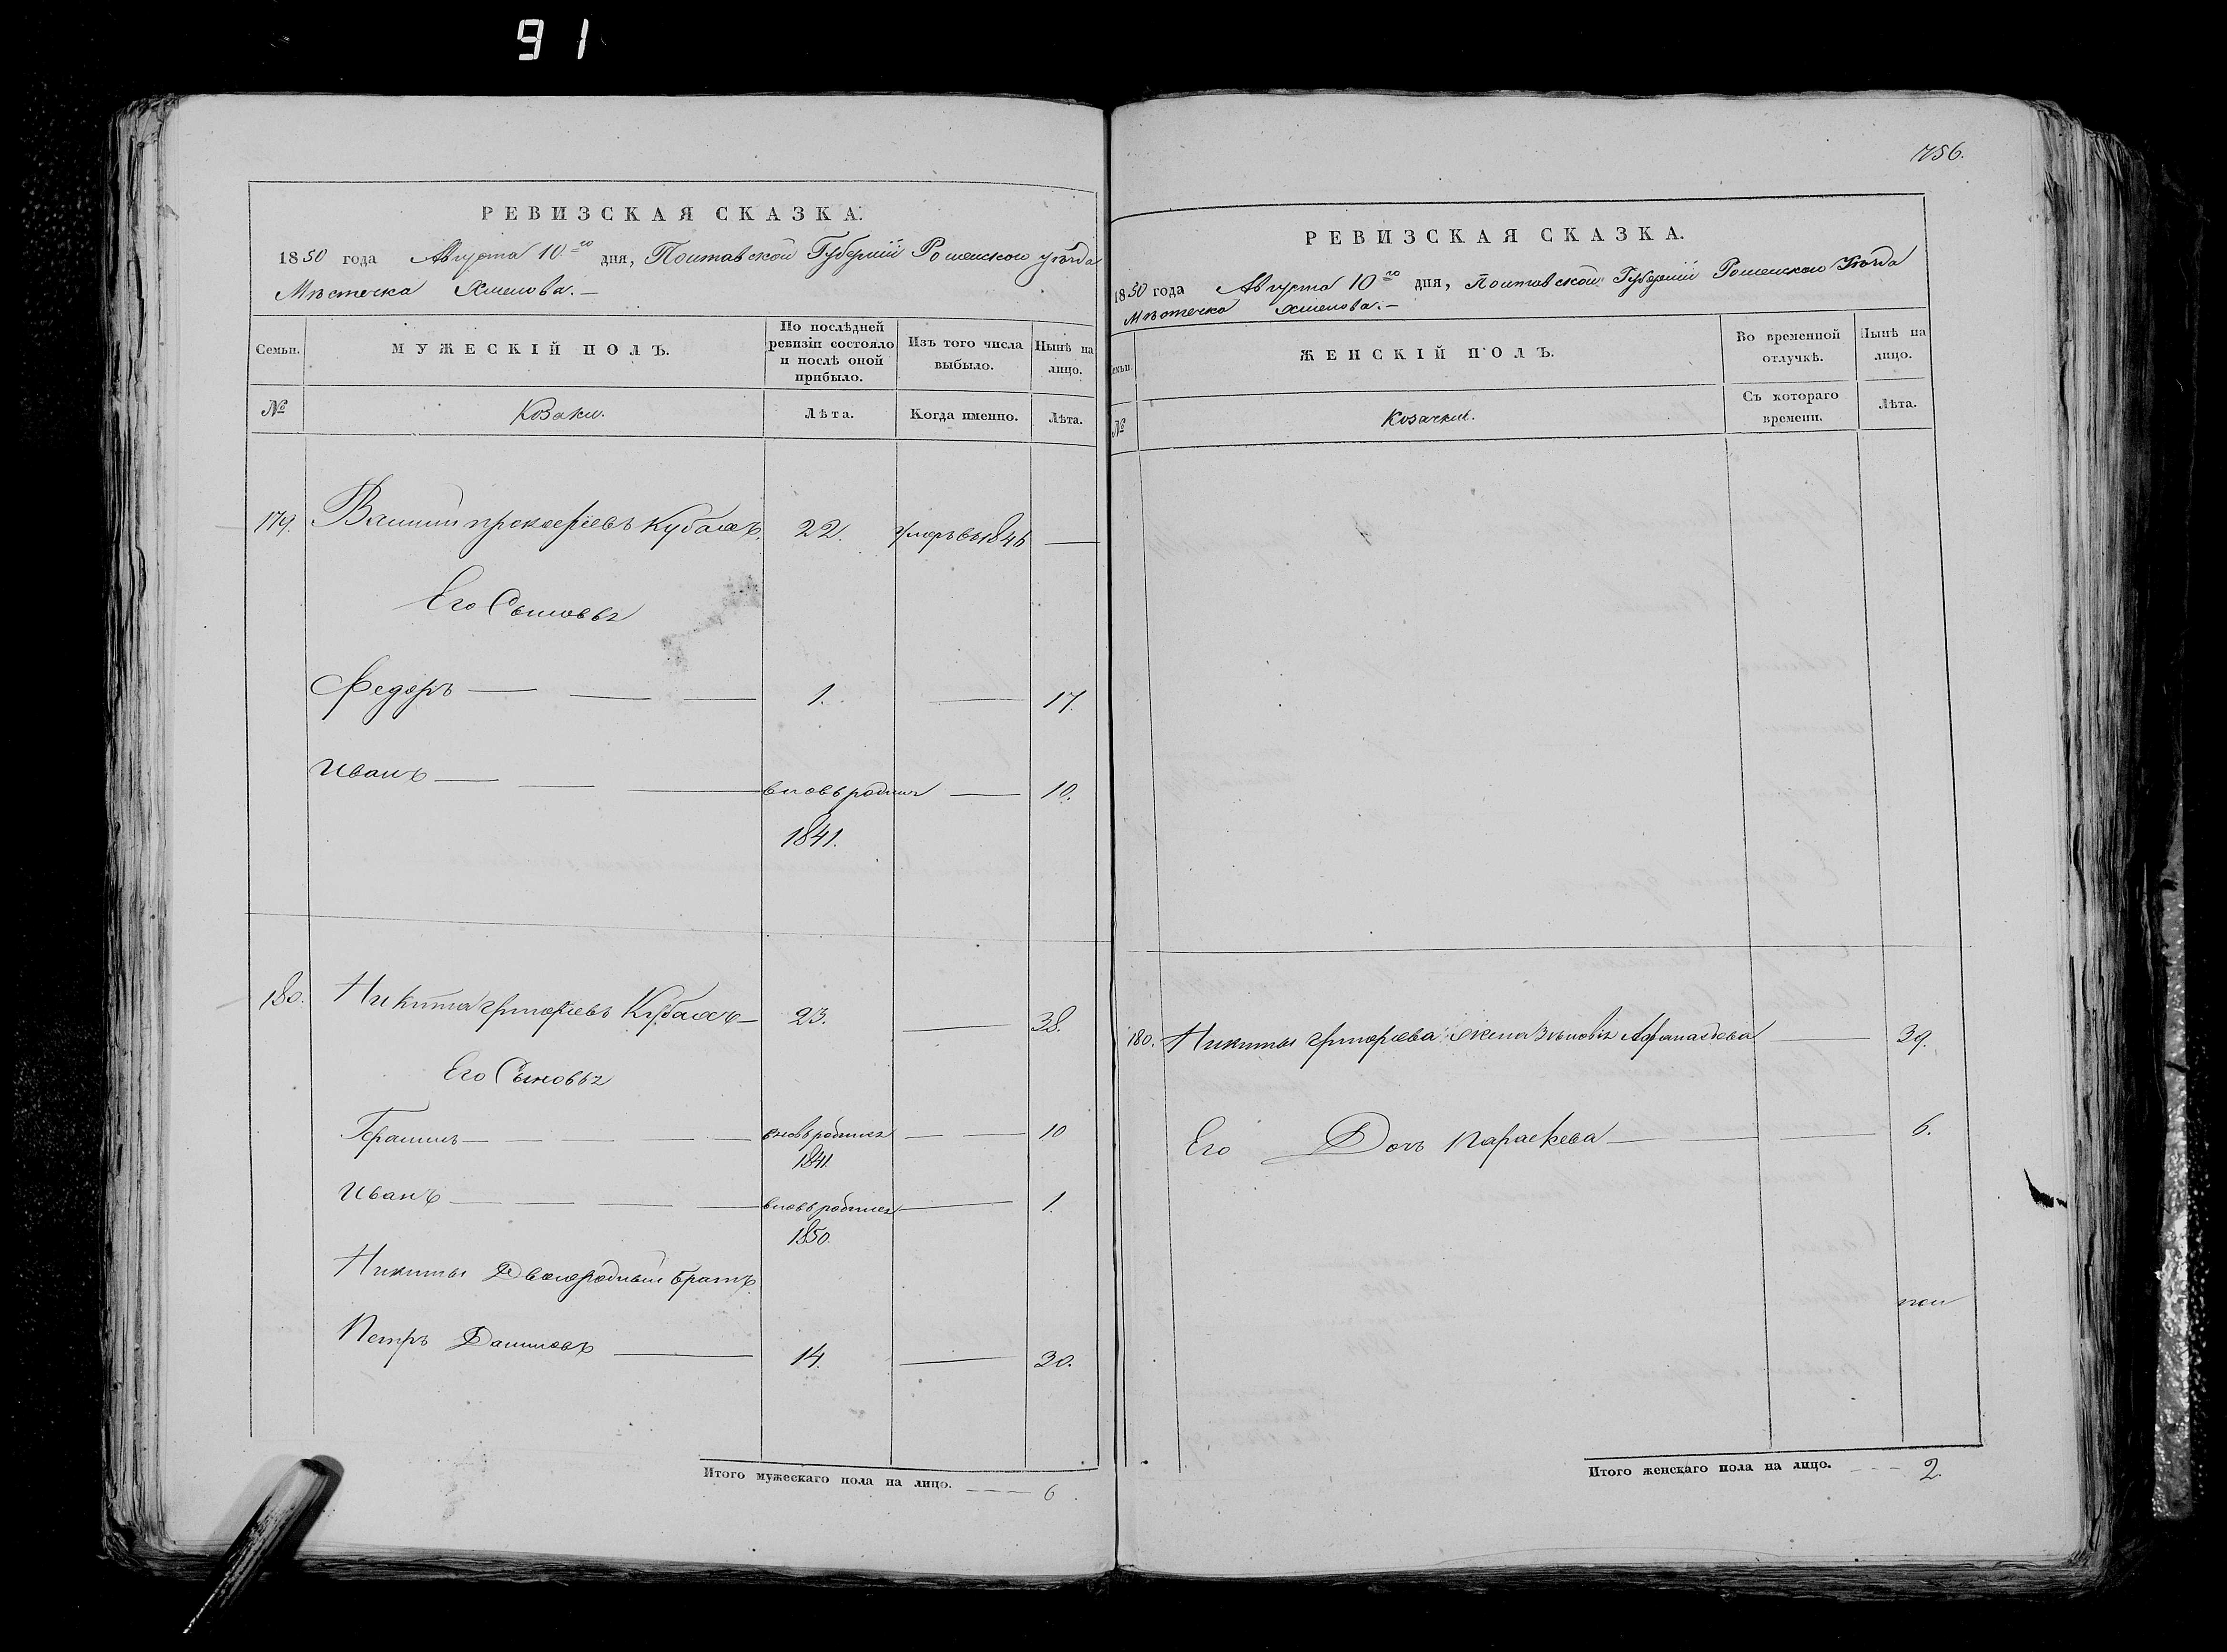 91
РЕВИЗСКАЯ СКАЗКА.
1850 года Августа 10го дня, Полтавской Губернiи Роменского уѣзда
Мѣстечка Хмелова.—
Семьи.
МУЖЕСКІЙ ПОЛЪ.
По послѣдней ревизіи состояло и послѣ оной прибыло.
Изъ того числа выбыло.
Нынѣ на лицо.
№
Козаки.
Лѣта.
Когда именно.
Лѣта.
179. прокофіевъ 22. умеръ въ 1846 —
Его Сыновья
Федоръ — — — 1. — 17.
Иванъ — — — вновь родил — 10.
1841.
180. Никита григоріевъ 23. — 38.
Его Сыновья
— — — вновь родился — — 10
1841.
Иванъ — — — — вновь родился — 1.
1850.
Никиты Двоюродный братъ
Петръ Даниловъ — 14. — 30.
Итого мужескаго пола на лицо. — — — 6
756.
РЕВИЗСКАЯ СКАЗКА.
1850 года Августа 10го дня, Полтавской Губернiи Роменского Уѣзда
Мѣстечка Хмелова.—
Семьи.
ЖЕНСКІЙ ПОЛЪ.
Во временной отлучкѣ.
Нынѣ на лицо.
№
Козачки.
Съ котораго времени.
Лѣта.
180. Никиты григоріева жена Зѣновія Афанасіева — 39.
Его Дочь параскева — — — 6.
Итого женскаго пола на лицо. — — — 2.